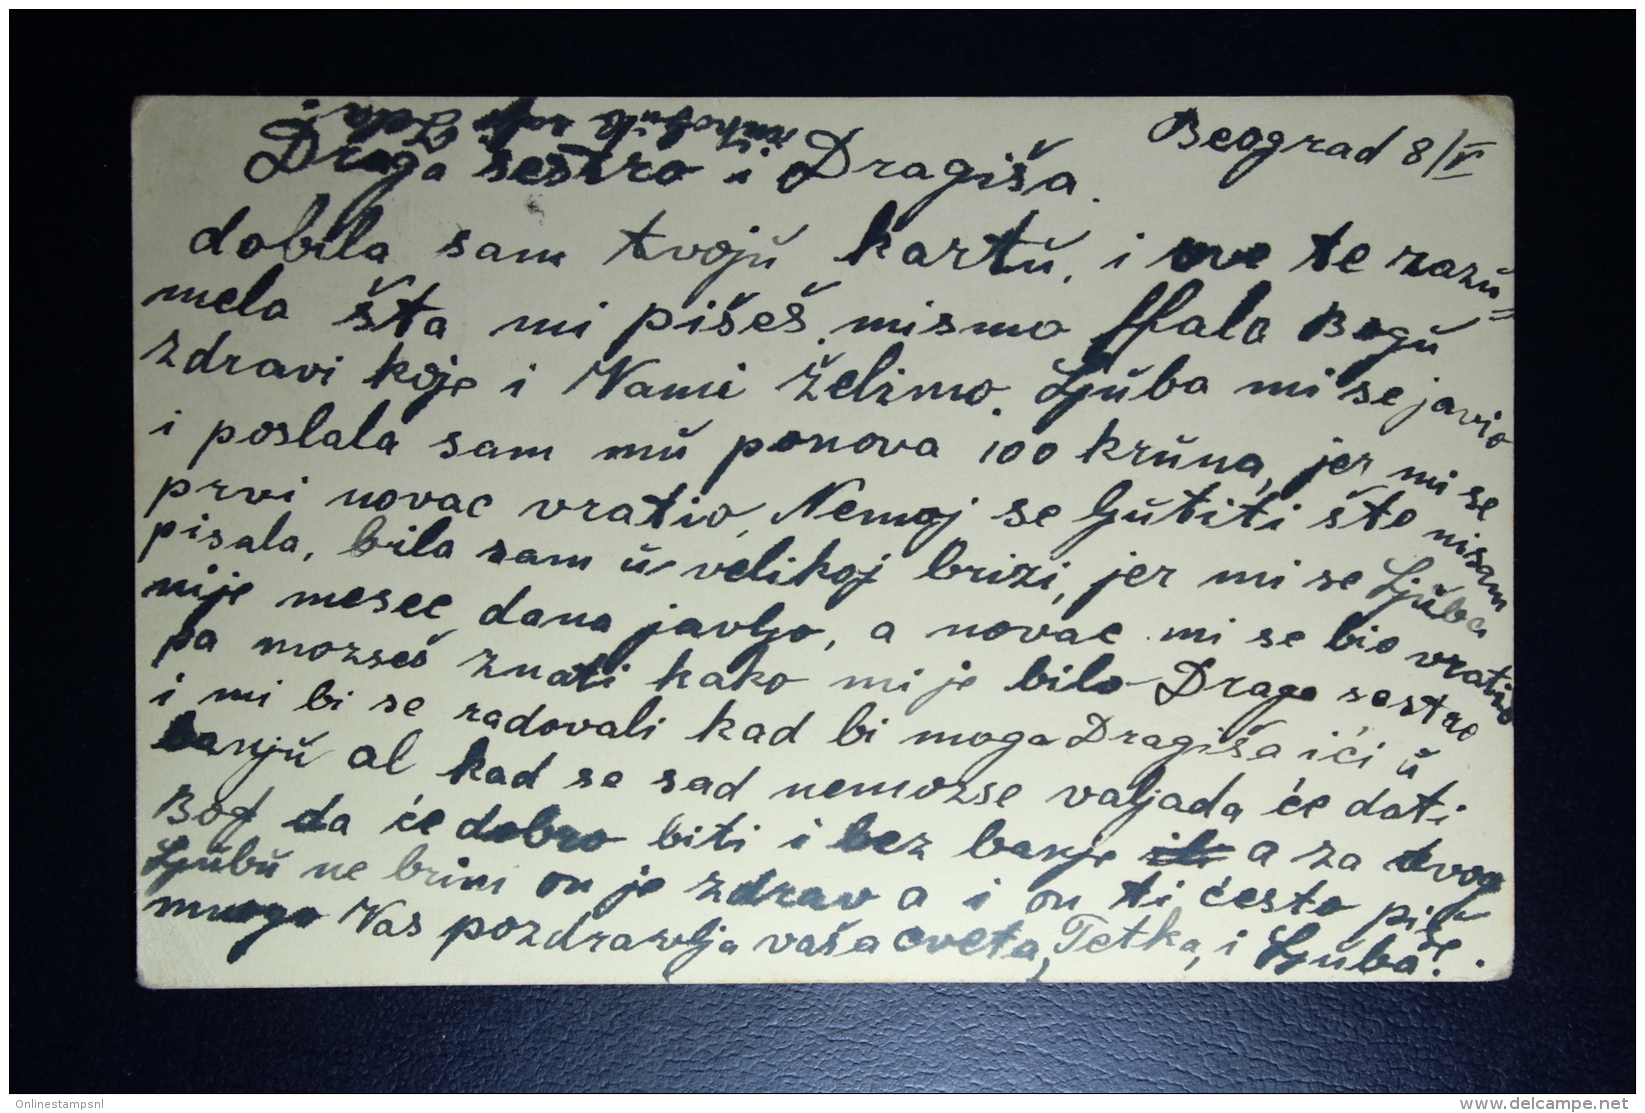 Beograd 8/V
Draga sestro i Dragiša.
dobila sam tvoju kartu, i sve te razu=
mela šta mi pišeš. mismo ffala Bogu
zdravi koje i Vami želimo. Ljuba mi se javio
i poslala sam mu ponova 100 kruna, jer mi se
prvi novac vratio, Nemoj se ljutiti što nisam
pisala, bila sam u velikoj brizi, jer mi se Ljuba
nije mesec dana javljo, a novac mi se bio vratio
pa mozseš znati kako mi je bilo Drago sestro
i mi bi se radovali kad bi moga Dragiša ići u
banju al kad se sad nemozse valjada će dati
Bog da će dobro biti i bez banje a za tvog
Ljubu ne brini on je zdrav a i on ti ćesto piše.
mnogo Vas pozdravlja vaša Cveta, Tetka, i Ljuba.
Onlinestampsnl
www.delcampe.net